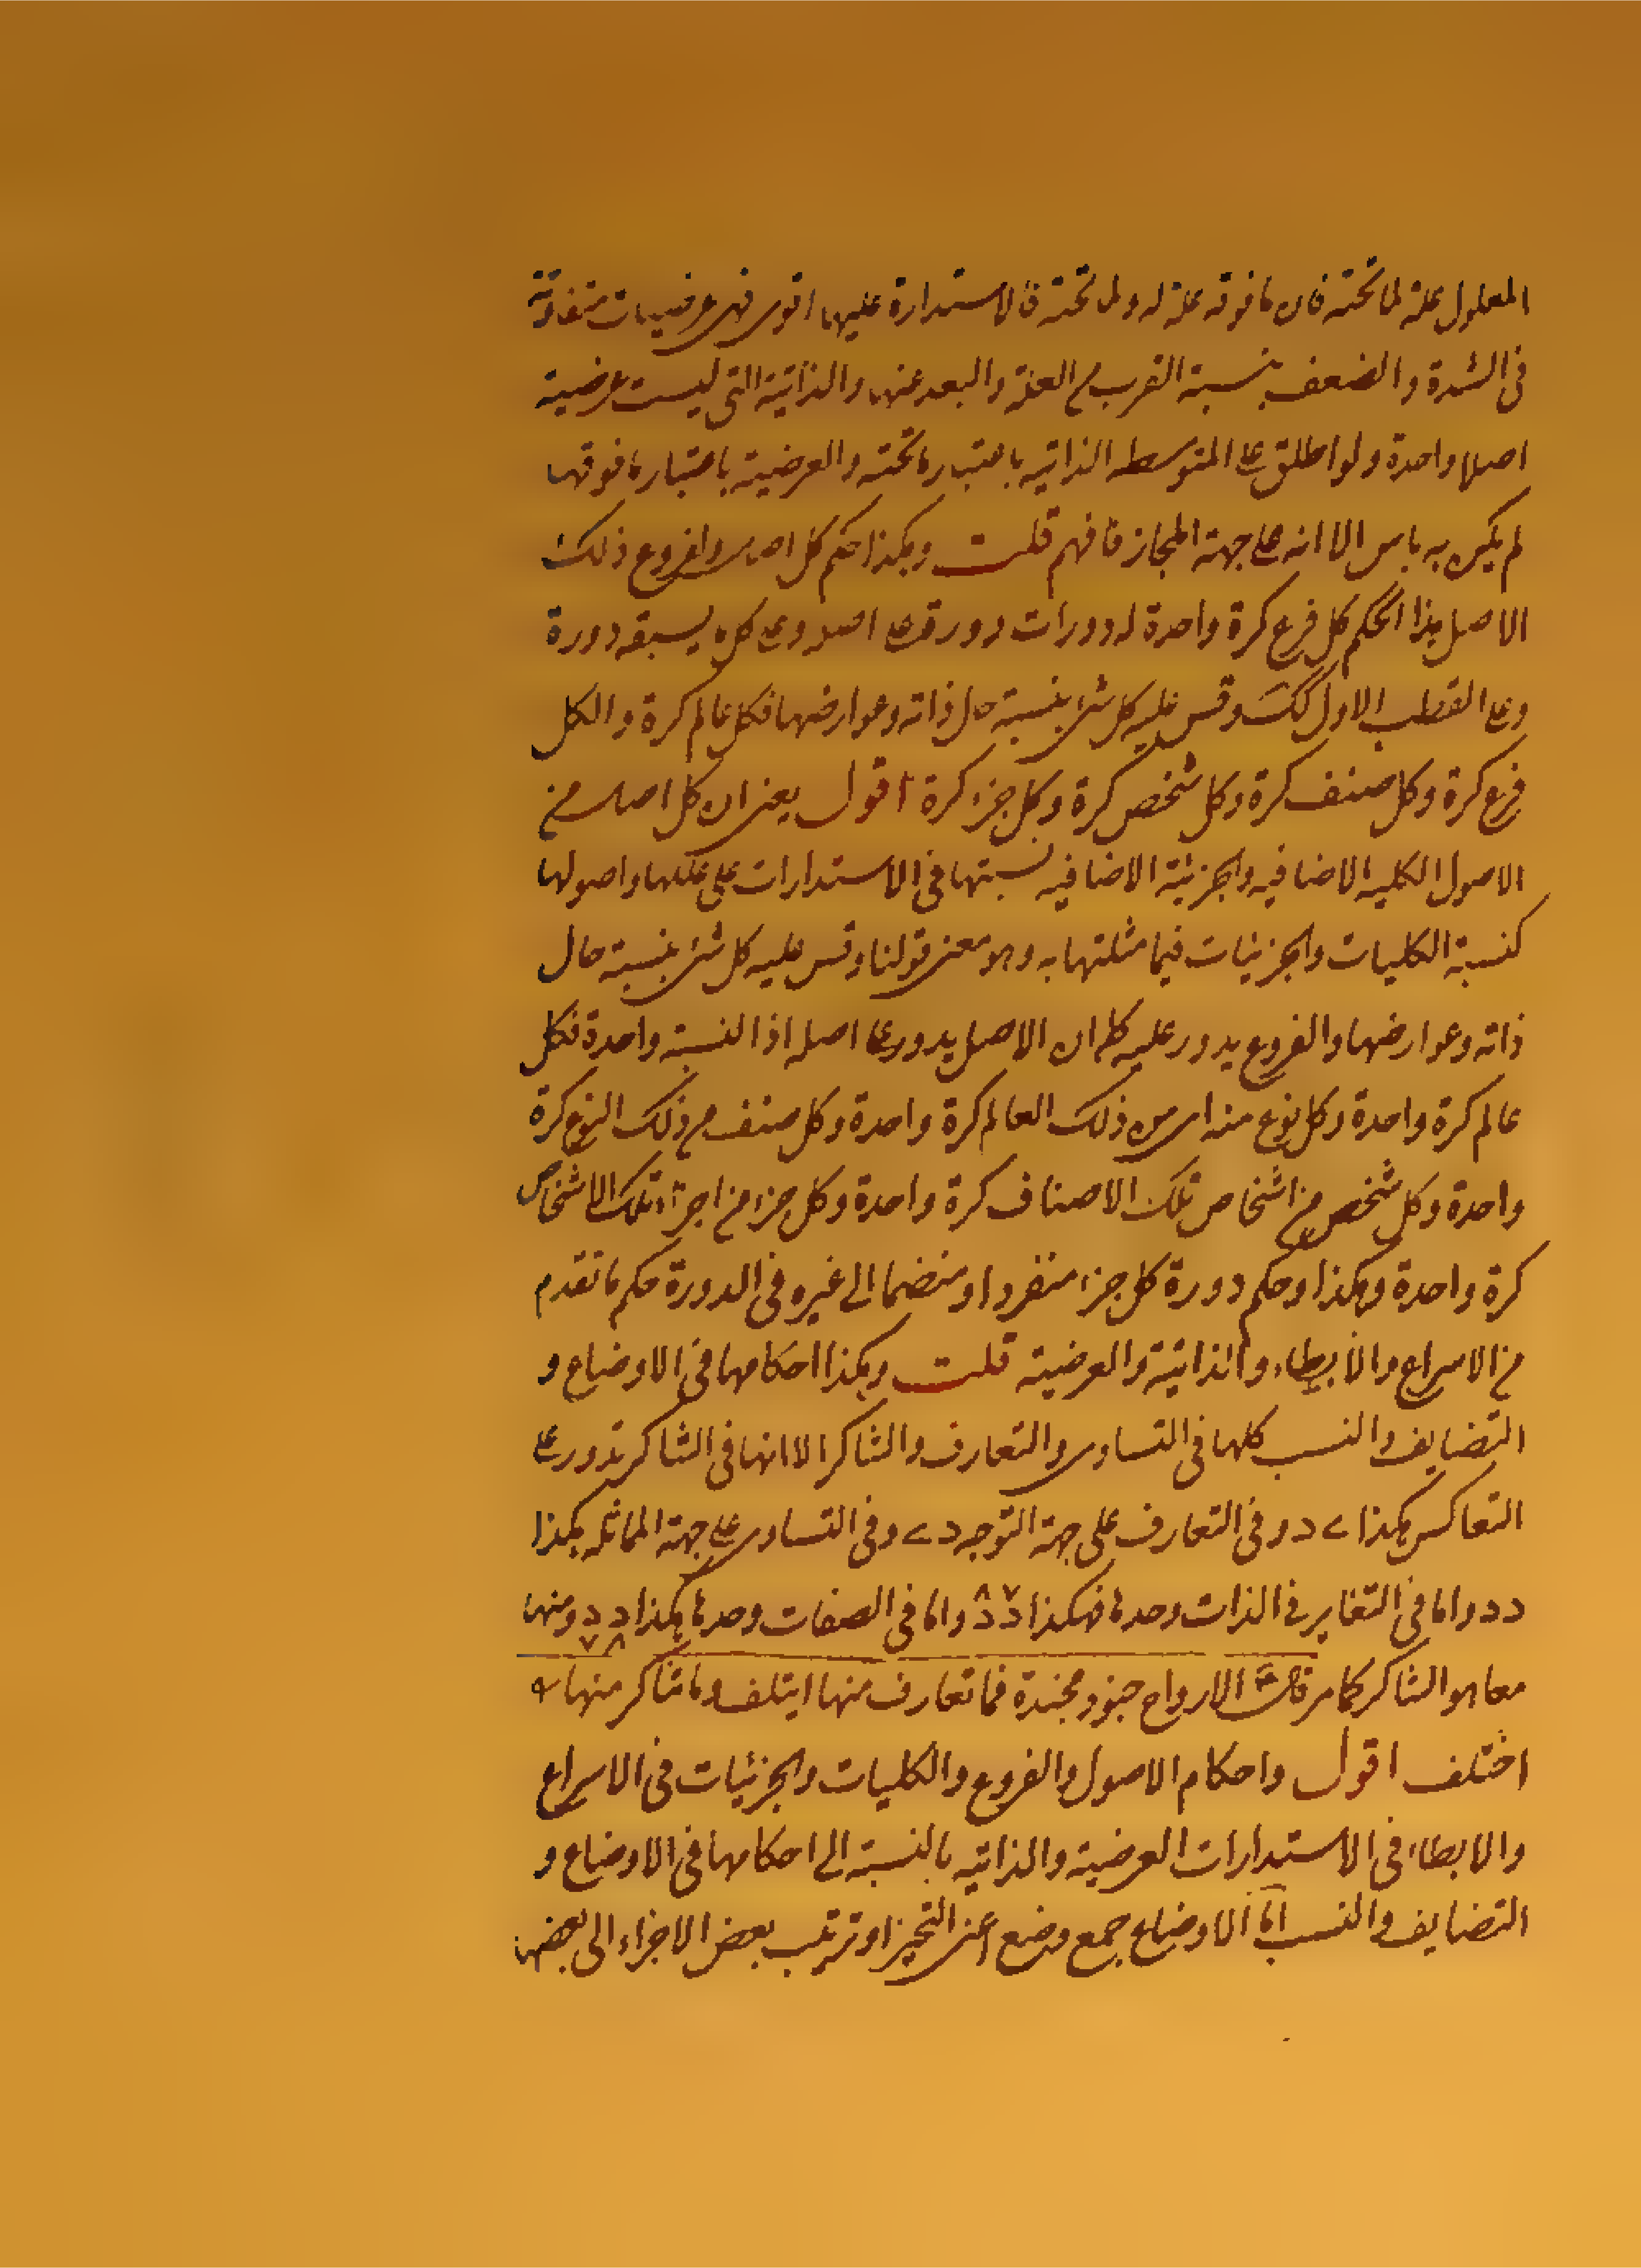 المعلول علة لما تحته فان ما فوقه علة له ولما تحته فالاستدارة عليها اقوى فهى عرضيات متفاوتة
فى الشدة والضعف بنسبة القرب من العلة والبعد عنها والذاتية التى ليست عرضية
اصلا واحدة ولو اطلق على المتوسطه الذاتيه باعتبار ما تحته والعرضية باعتبار ما فوقها
لم يكن به باس الا انه على جهة المجاز فافهم قلت وهكذا حكم كل اصل ولفروع ذلك
الاصل هذا الحكم كل فرع كرة واحدة له دورات دورة على اصله وعلى كل ما يسبقه دورة
وعلى القطب الاول كك وقس عليه كل شئ بنسبة حال ذاته وعوارضها فكل عالم كرة والكل
فرع كرة وكل صنف كرة وكل شخص كرة وكل جزء كرة اقول يعنى ان كل اصل من
الاصول الكليه الاضافيه والجزئية الاضافيه نسبتها فى الاستدارات على عللها واصولها
كنسبة الكليات والجزئيات فيما مثلتها به وهو معنى قولنا وقس عليه كل شئ بنسبة حال
ذاته وعوارضها والفروع يدور عليه كما ان الاصل يدور على اصله اذا النسبة واحدة فكل
عالم كرة واحدة وكل نوع منه اى من ذلك العالم كرة واحدة وكل صنف من ذلك النوع كرة
واحدة وكل شخص من اشخاص تلك الاصناف كرة واحدة وكل جزء من اجزاء تلك الاشخاص
كرة واحدة وهكذا وحكم دورة كل جزء منفردا او منضما الى غيره فى الدورة حكم ما تقدم
من الاسراع والابطاء والذاتية والعرضية قلت وهكذا احكامها فى الاوضاع و
التضايف والنسب كلها فى التساوى والتعارف والتناكر الا انها فى التناكر تدور على
التعاكس هكذا ے د وفى التعارف على جهة التوجه د ے وفى التساوى على جهة المماثله هكذا
د د واما فى التغاير فى الذات وحدها فهكذا د د واما فى الصفات وحدها هكذا د د ومنها
معا هو التناكر كما مر قال الارواح جنود مجندة فما تعارف منها ايتلف وما تناكر منها
اختلف اقول واحكام الاصول والفروع والكليات والجزئيات فى الاسراع
والابطاء فى الاستدارات العرضية والذاتيه بالنسبة الى احكامها فى الاوضاع و
التضايف والنسب اما الاوضاع جمع وضع اعنى التحيز او ترتب بعض الاجزاء الى بعضها